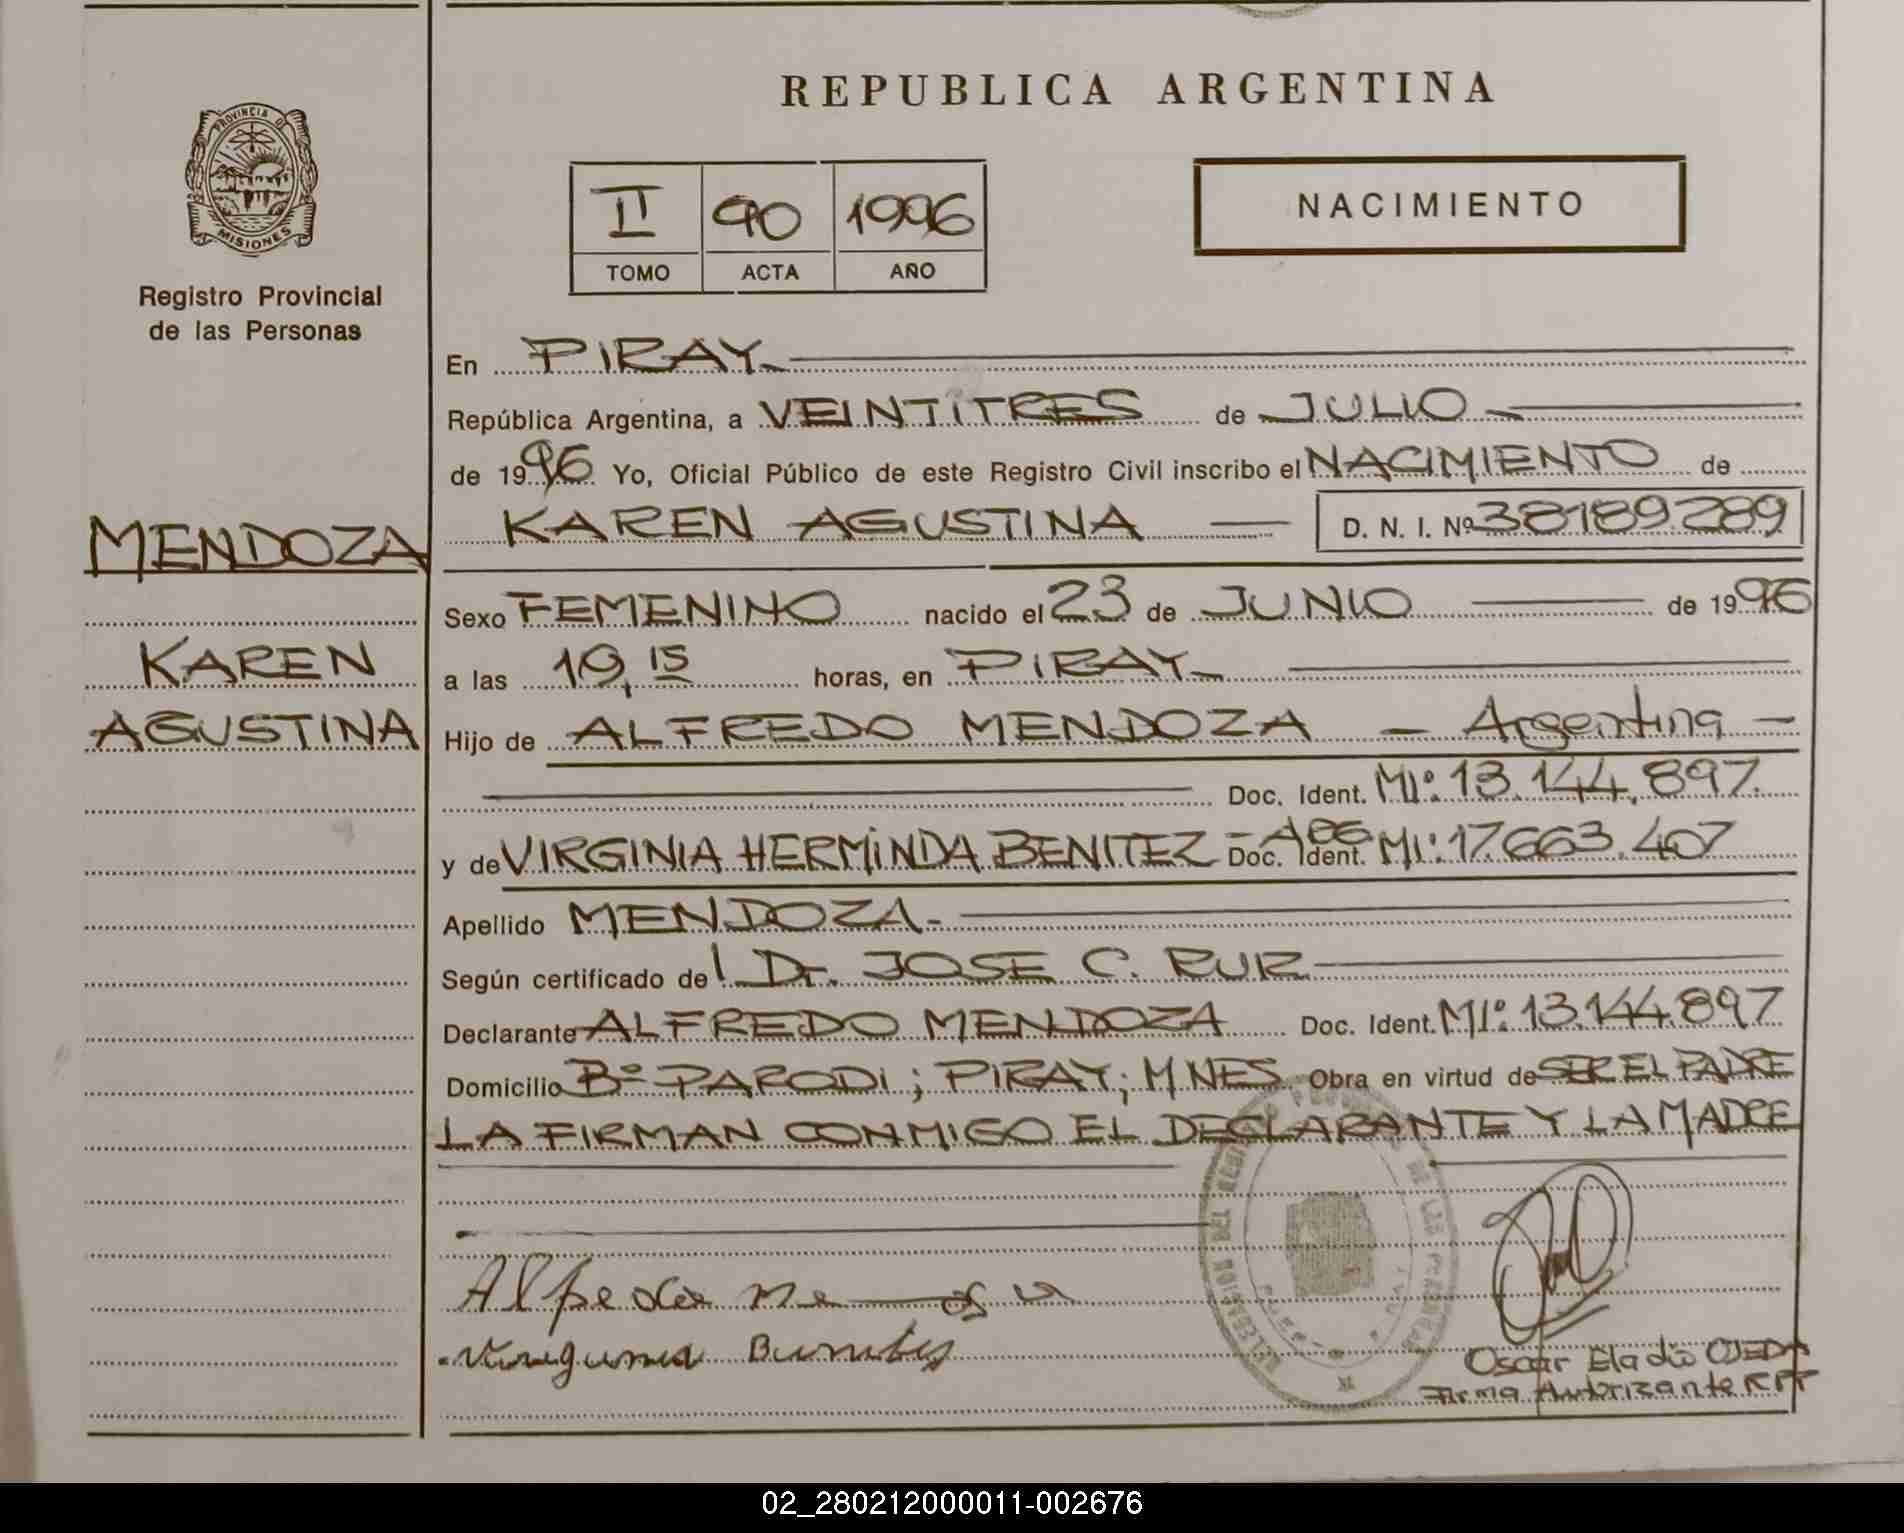 REPUBLICA ARGENTINA
PROVINCIA DE
MISIONES
Registro Provincial
de las Personas
II 90 1996
TOMO ACTA AÑO
NACIMIENTO
En PIRAY
República Argentina, a VEINTITRES de JULIO
de 1996 Yo, Oficial Público de este Registro Civil inscribo el NACIMIENTO de
MENDOZA
KAREN AGUSTINA D. N. I. Nº 38189289
Sexo FEMENINO nacido el 23 de JUNIO de 1996
KAREN
a las 19,15 horas, en PIRAY
AGUSTINA
Hijo de ALFREDO MENDOZA - Argentina -
Doc. Ident. MIº: 13.144.897.
y de VIRGINIA HERMINDA BENITEZ - ARG Doc. Ident. MIº: 17.663.407
Apellido MENDOZA.-
Según certificado de l Dr. JOSE C. RUIZ
Declarante ALFREDO MENDOZA Doc. Ident. MIº: 13.144.897
Domicilio Bº PARODI; PIRAY; MNES. Obra en virtud de SER EL PADRE
LA FIRMAN CONMIGO EL DECLARANTE Y LA MADRE
DELEGACION DEL REGISTRO PROVINCIAL DE LAS PERSONAS
Oscar Eladio OJEDA
Firma Autorizante RPP
02_280212000011-002676